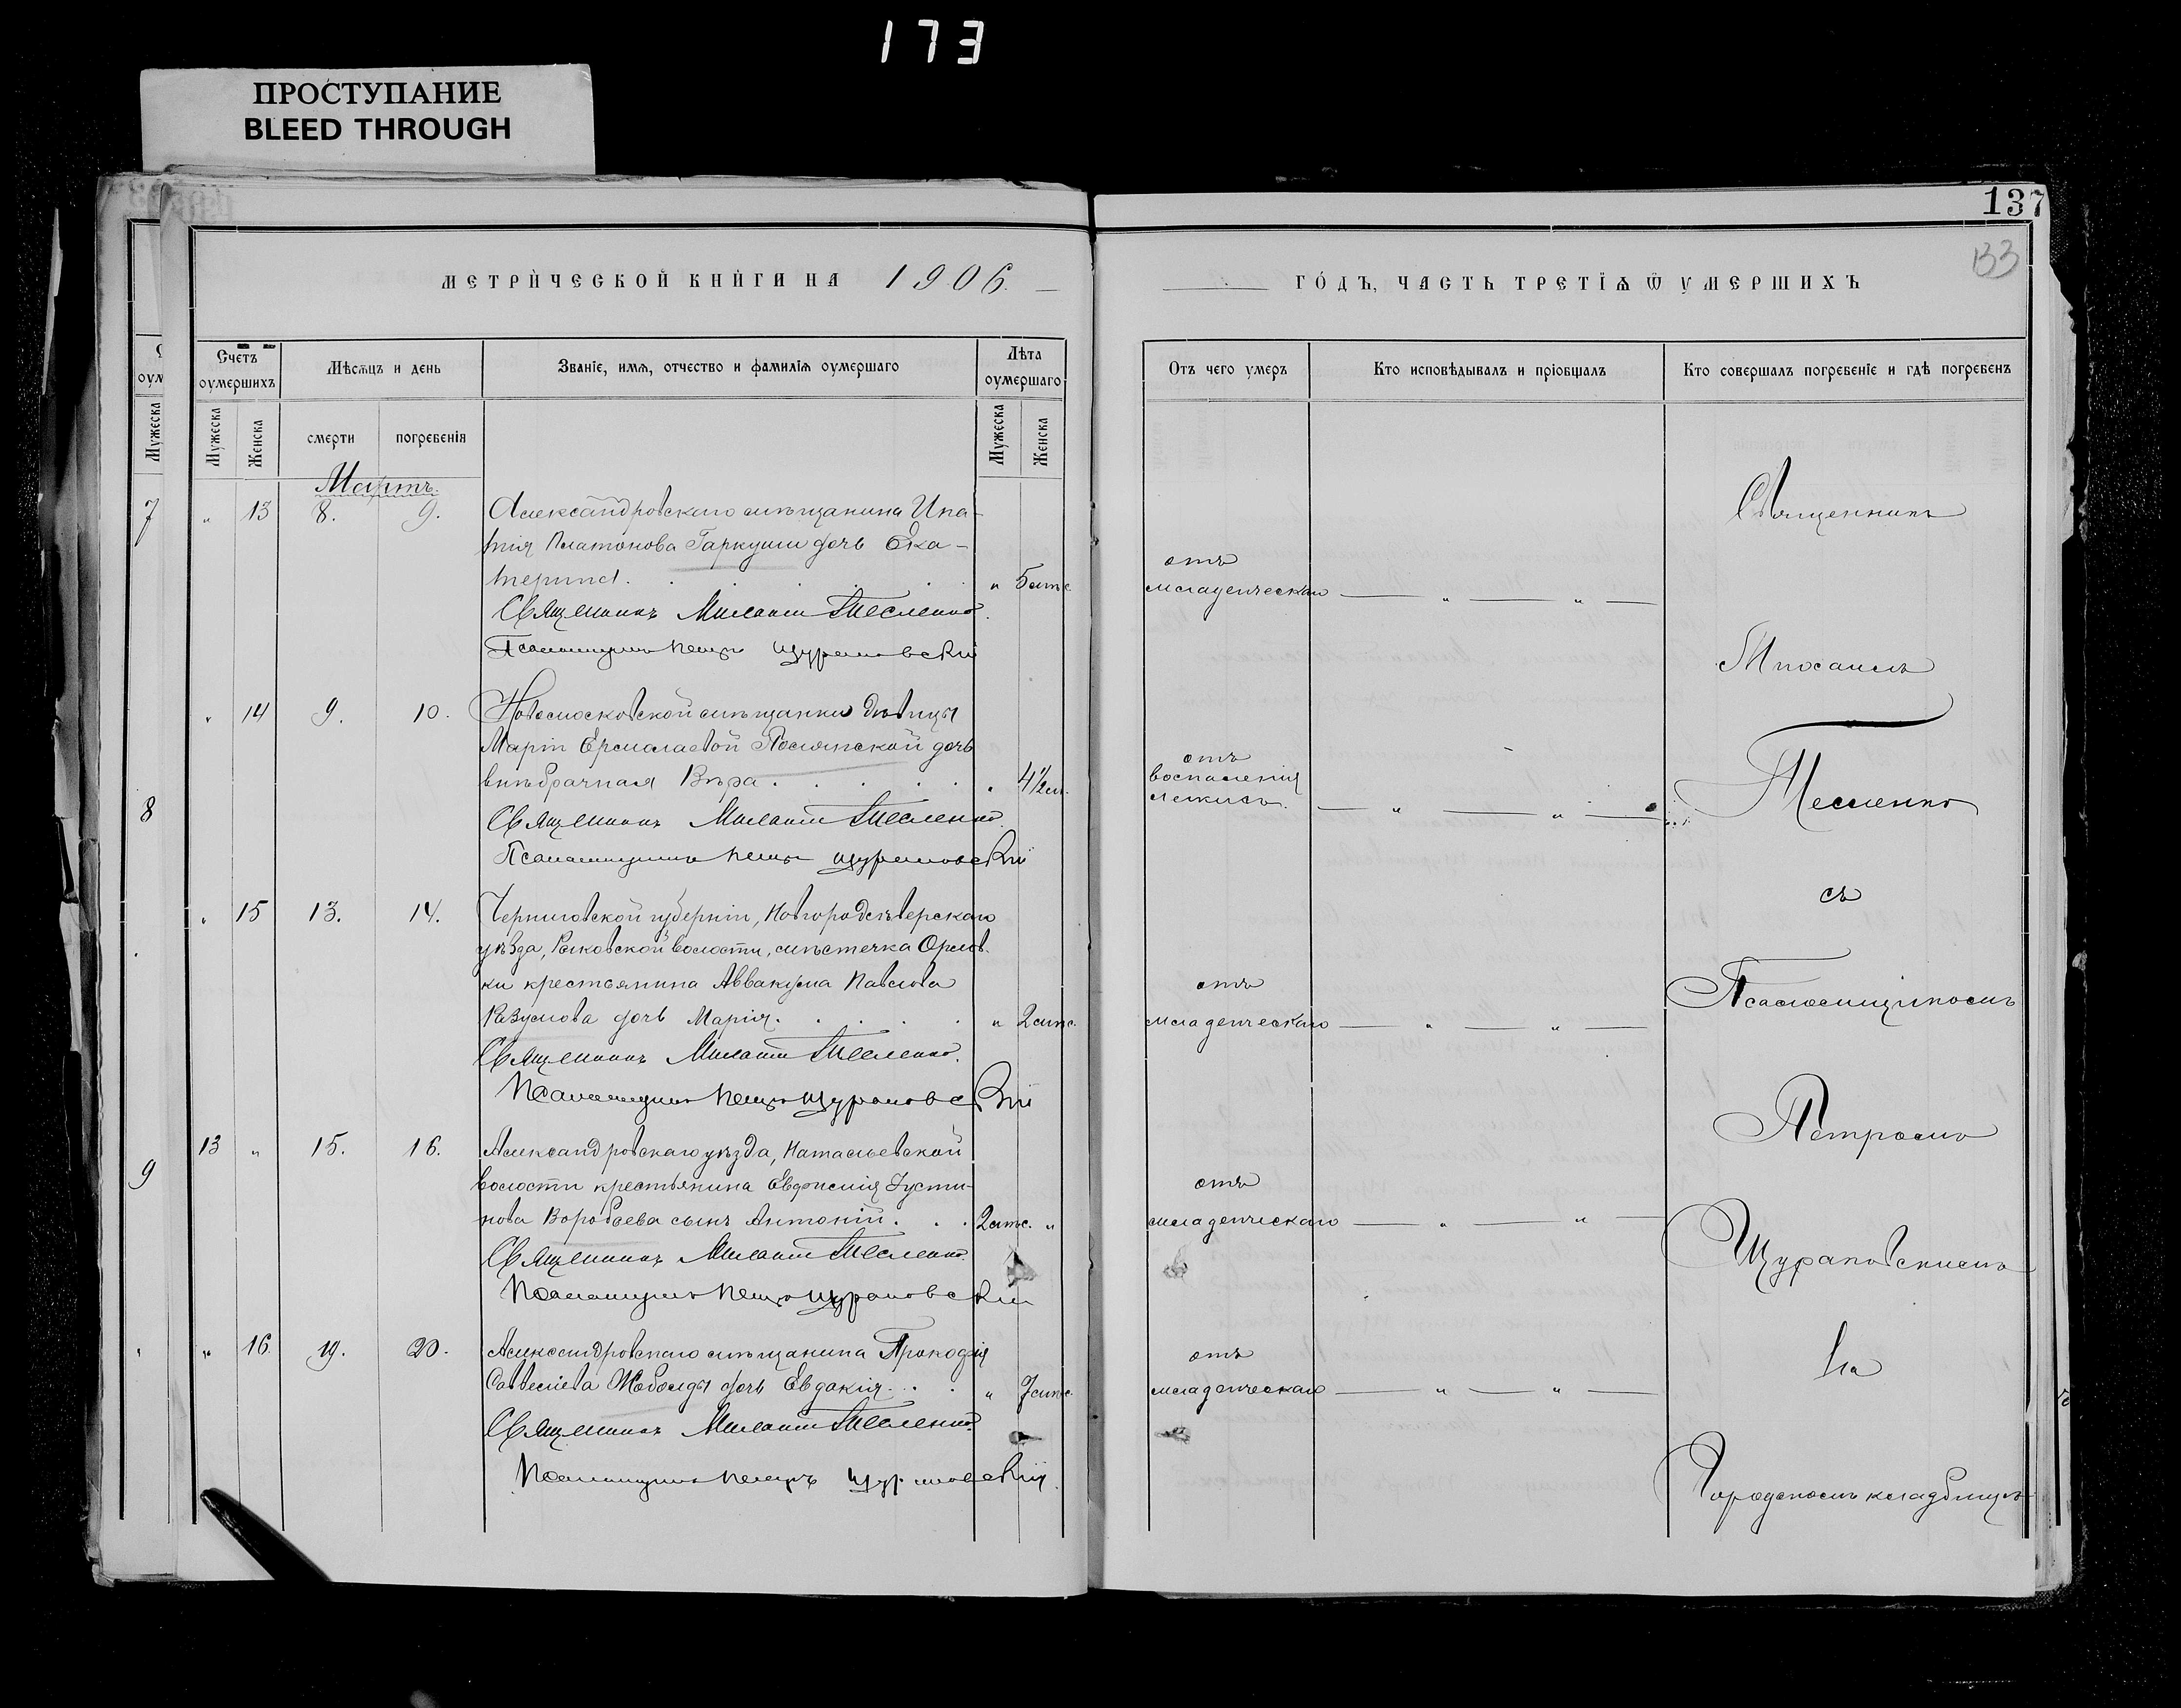 173
ПРОСТУПАНИЕ
BLEED THROUGH
137
133
МЕТРИЧЕСКОЙ КНИГИ НА 1906
ГОДЪ, ЧАСТЬ ТРЕТІѦ Ѿ УМЕРШИХЪ
Счетъ оумершихъ
Мѣсяцъ и день
Званіе, имя, отчество и фамилія оумершаго
Лѣта оумершаго
Отъ чего умеръ
Кто исповѣдывалъ и пріобщалъ
Кто совершалъ погребеніе и гдѣ погребенъ
Мужеска
Мужеска
Женска
смерти
погребенія
Мужеска
Женска
Мартъ.
7
" 13 8. 9. Александровскаго мѣщанина Ипа-
тія Платонова Гаркуши дочь Ека-
терина. " 5 мѣс.
отъ
младенческаго — " — " —
Священникъ Михаилъ Тесленко.
Псаломщикъ Петръ Щурановскій
" 14 9. 10. Новомосковской мѣщанки дѣвицы
Маріи Ермолаевой дочь
внѣбрачная Вѣра " 4½ м.
отъ
воспаленія
легкихъ. — " — " —
8
Священникъ Михаилъ Тесленко.
Псаломщикъ Петръ Щурановскій
" 15 13. 14. Черниговской губерніи, Новгородсѣверскаго
уѣзда, волости, мѣстечка Орлов-
ки крестьянина Аввакума Павлова
Разумова дочь Марія. " 2 мѣс.
отъ
младенческаго — " — " —
Священникъ Михаилъ Тесленко.
Псаломщикъ Петръ Щурановскій
9
13 " 15. 16. Александровскаго уѣзда, Натальевской
волости крестьянина Евдокима Іусти-
нова Воробьева сынъ Антоній. 2 мѣс. "
отъ
младенческаго — " — " —
Священникъ Михаилъ Тесленко.
Псаломщикъ Петръ Щурановскій
" 16. 19. 20. Александровскаго мѣщанина Прокофія
Савельева дочь Евдокія. " 7 мѣс.
отъ
младенческаго — " — " —
Священникъ Михаилъ Тесленко.
Псаломщикъ Петръ Щурановскій.
Священникъ
Михаилъ
Тесленко
съ
Псаломщикомъ
Петромъ
Щурановскимъ
на
Городскомъ кладбищѣ